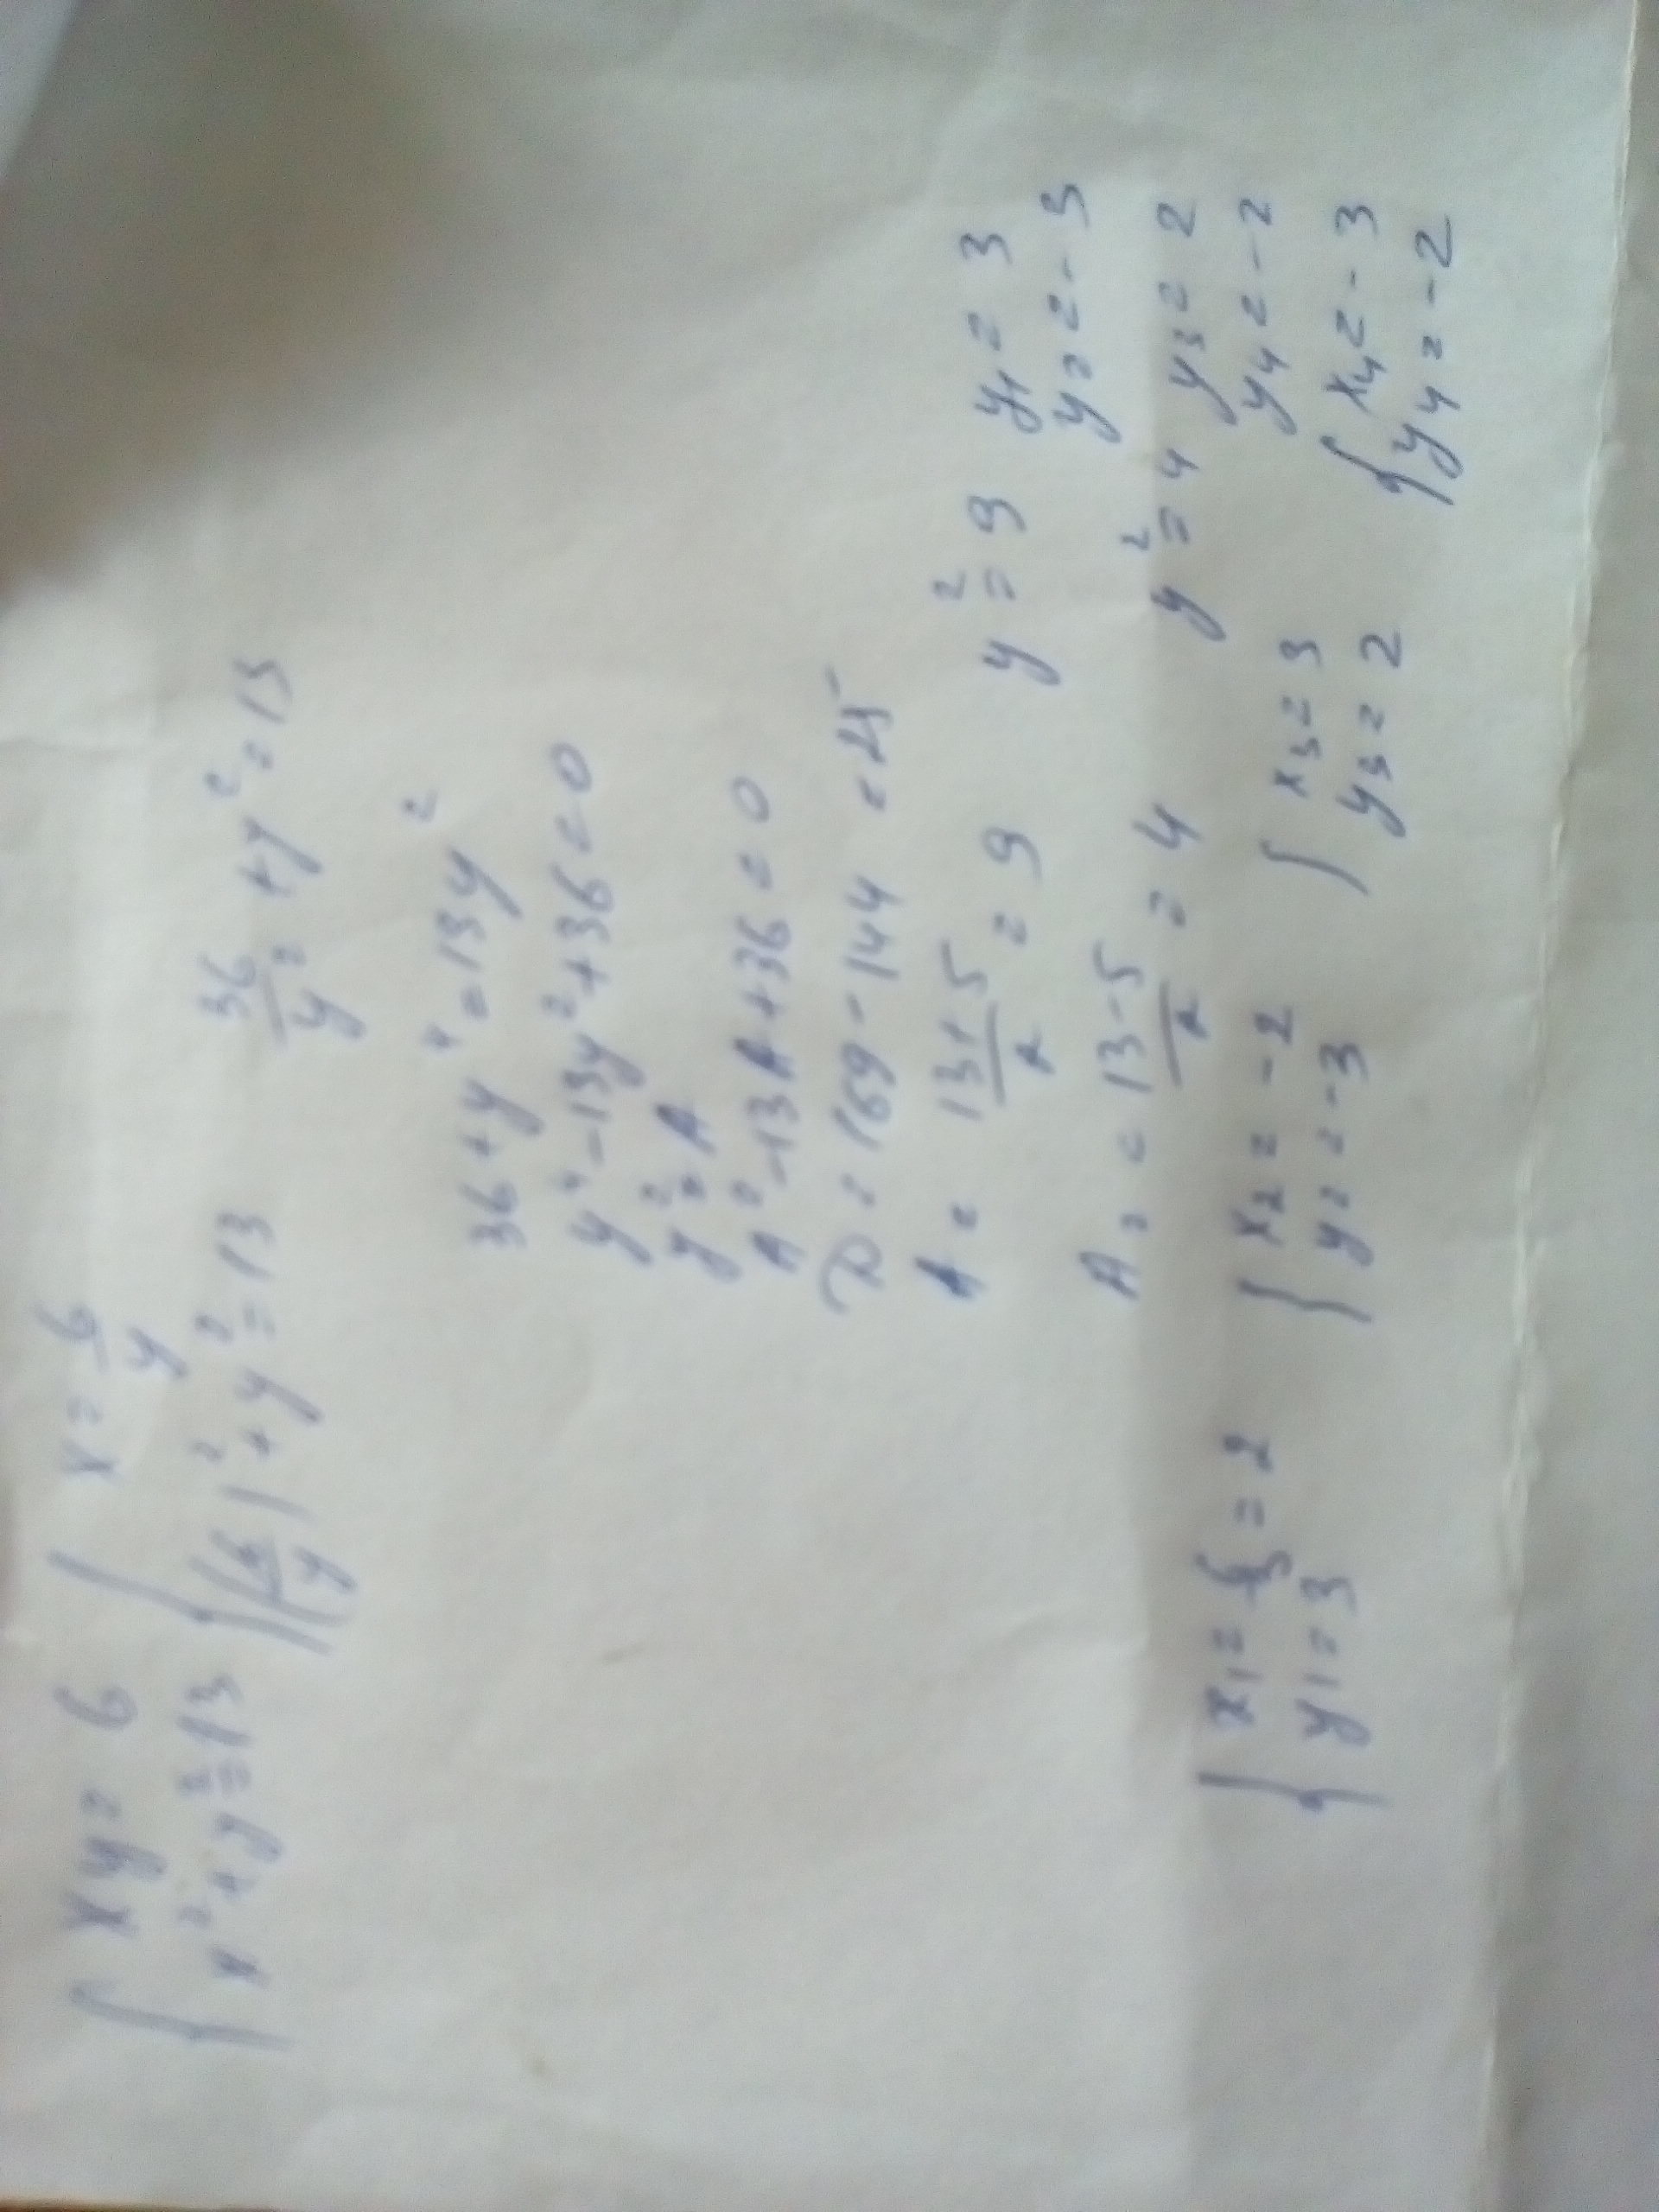 { xy = 6 { x = 6/y
x² + y² = 13 (6/y)² + y² = 13 36/y² + y² = 13
36 + y⁴ = 13y²
y⁴ - 13y² + 36 = 0
y² = A
A² - 13A + 36 = 0
D = 169 - 144 = 25
A = 13+5/2 = 9 y² = 9 y1 = 3
y2 = -3
A2 = 13-5/2 = 4 y² = 4 y3 = 2
y4 = -2
{ x1 = 6/3 = 2 { x2 = -2 { x3 = 3 { x4 = -3
y1 = 3 y2 = -3 y3 = 2 y4 = -2